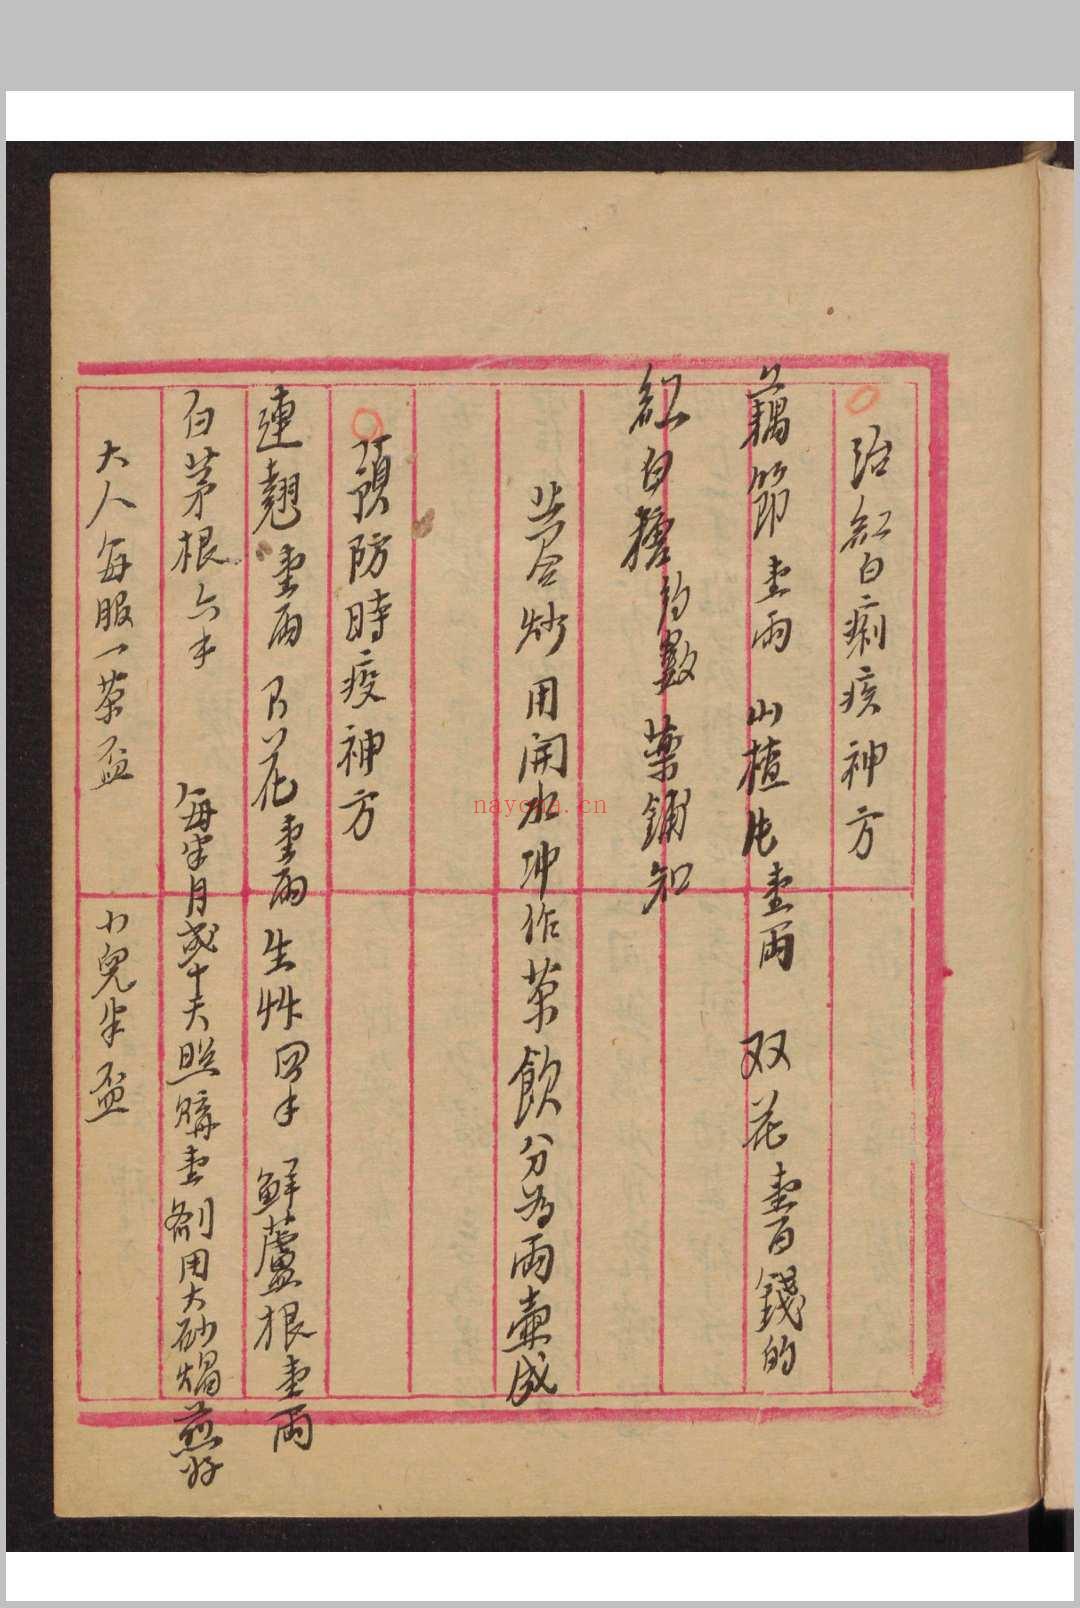 治紅白痢疾神方
藕節壹兩 山楂片壹兩 双花壹百錢的
紅白糖均數 藥鋪知
共合炒用開水冲作茶飲分為兩壺成
預防時疫神方
連翹壹兩 花壹兩 生艸四手 鮮蘆根壹兩
白茅根六手 每半月或十天照購壹劑用大砂焗煎好
大人每服一茶盃 小兒半盃
nayona.cn